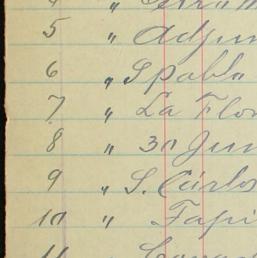 5 " Adjun
6 " S pablo
7 " La Flor
8 " 30 Jun
9 " S. Carlos
10 " Tapi
11